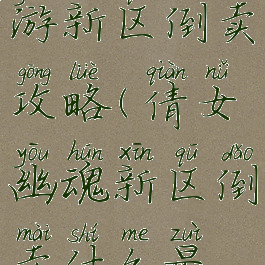 游新区倒卖
gōng lüè qiàn nǚ
攻略(倩女
yōu hún xīn qū dǎo
幽魂新区倒
mài shí me zuì
卖什么最